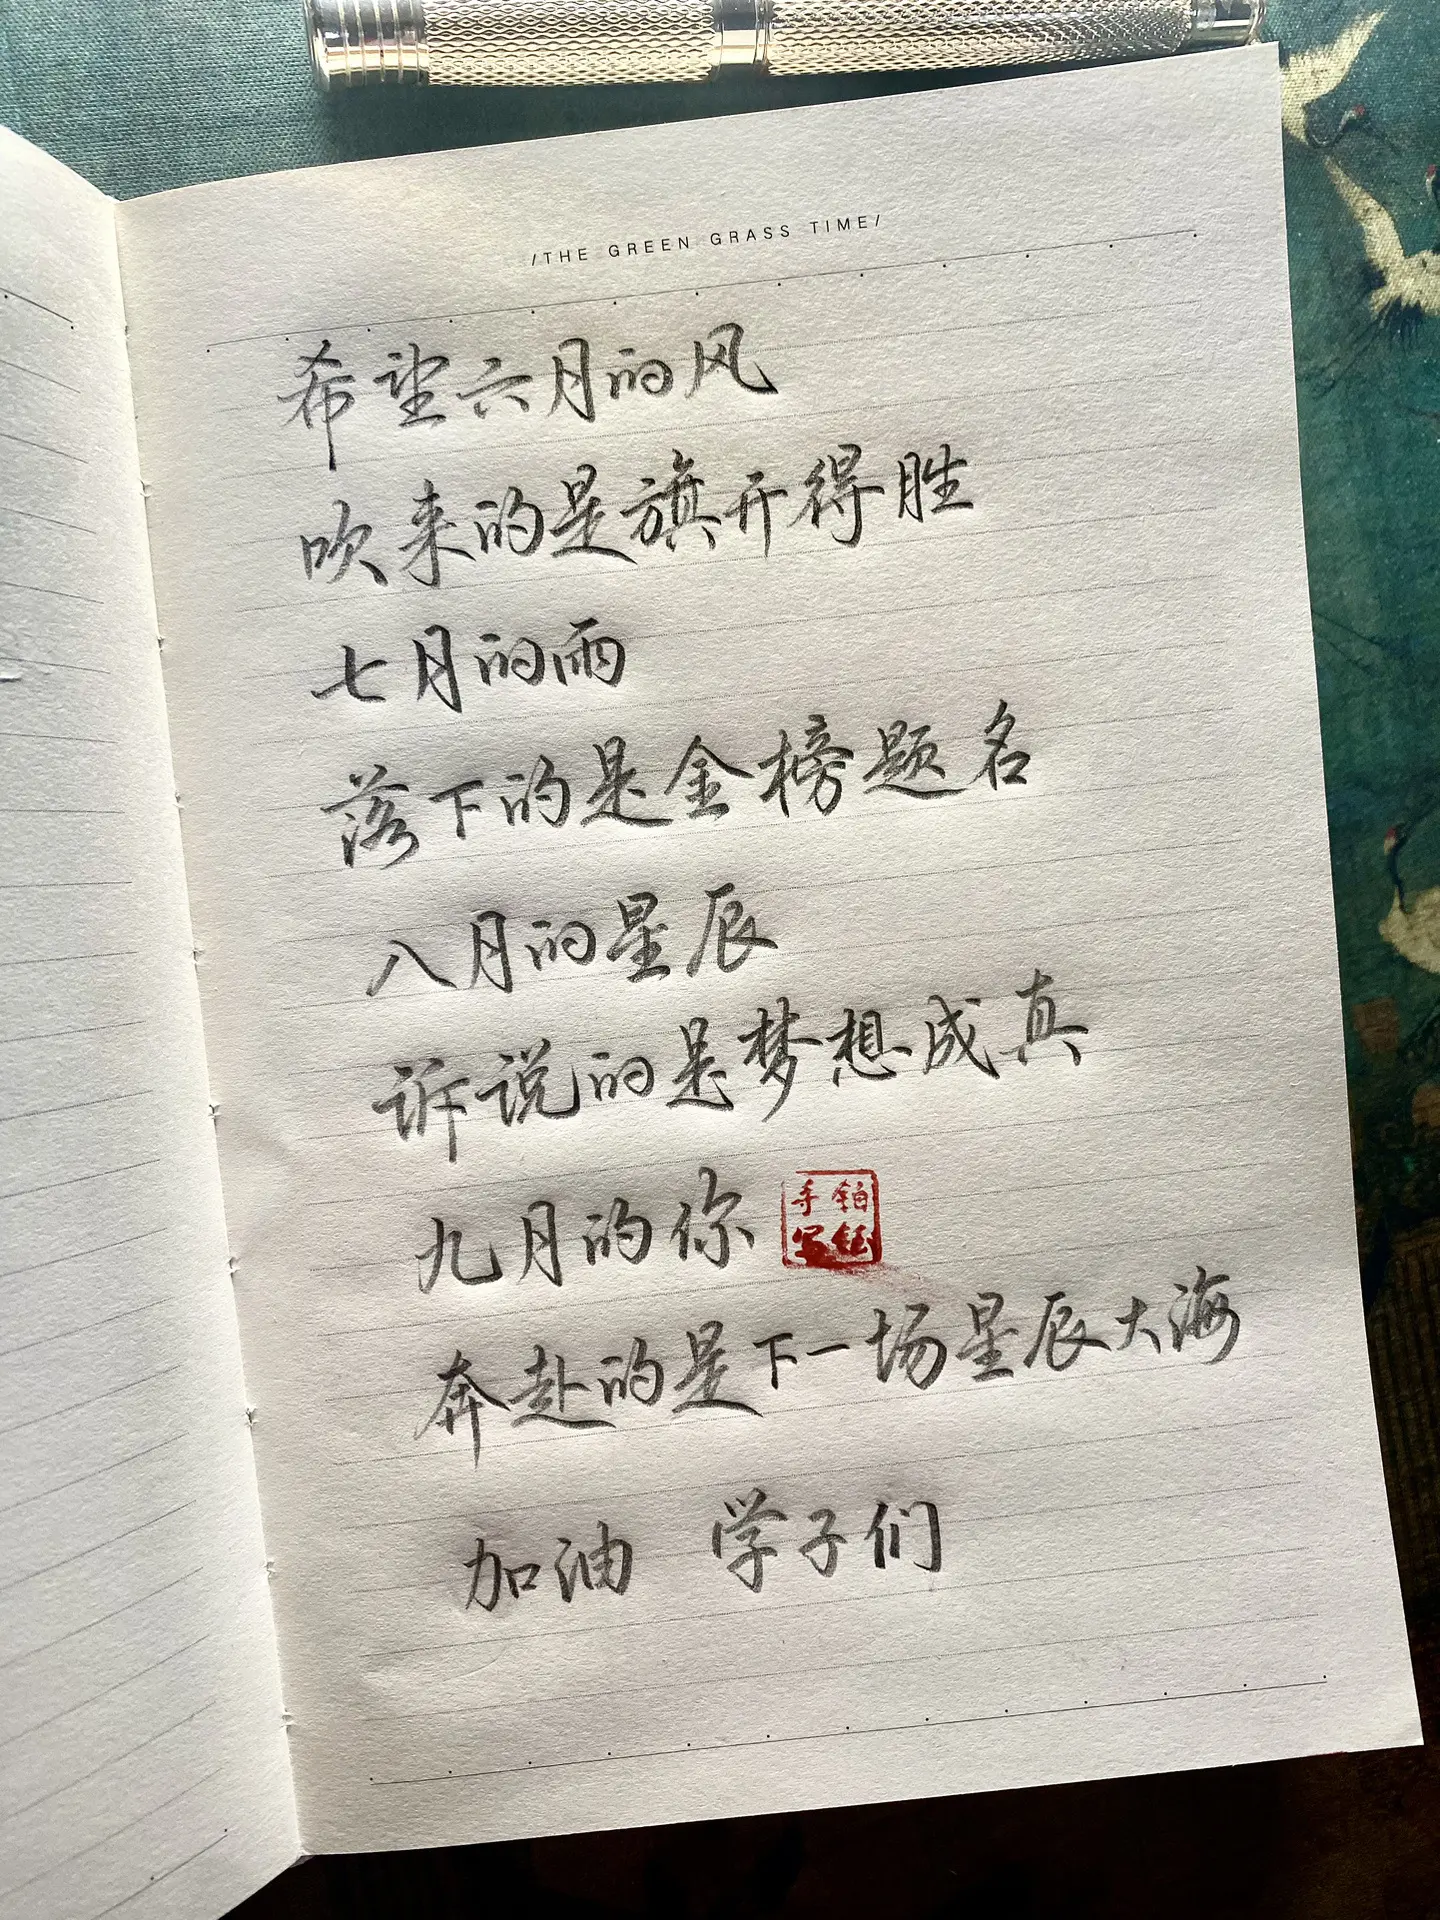 /THE GREEN GRASS TIME/
希望六月的风
吹来的是旗开得胜
七月的雨
落下的是金榜题名
八月的星辰
诉说的是梦想成真
九月的你
铂钰
手写
奔赴的是下一场星辰大海
加油 学子们